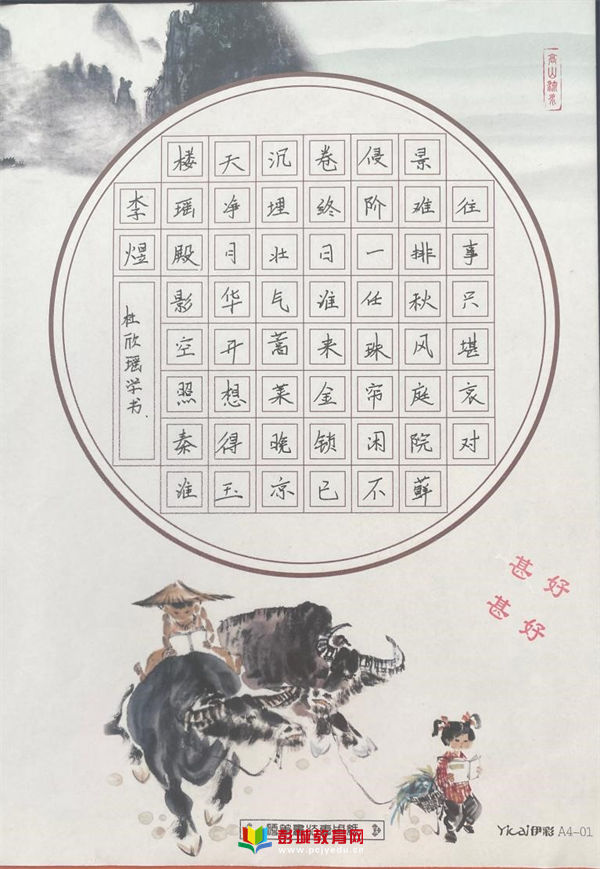 高山流水
往事只堪哀对
景难排秋风庭院藓
侵阶一任珠帘闲不
卷终日谁来金锁已
沉埋壮气蒿莱晚凉
天净月华开想得玉
楼瑶殿影空照秦淮
李煜
杜欣瑶学书.
甚好
甚好
彭城教育网
www.pcjyedu.cn
Yicai伊彩 A4-01